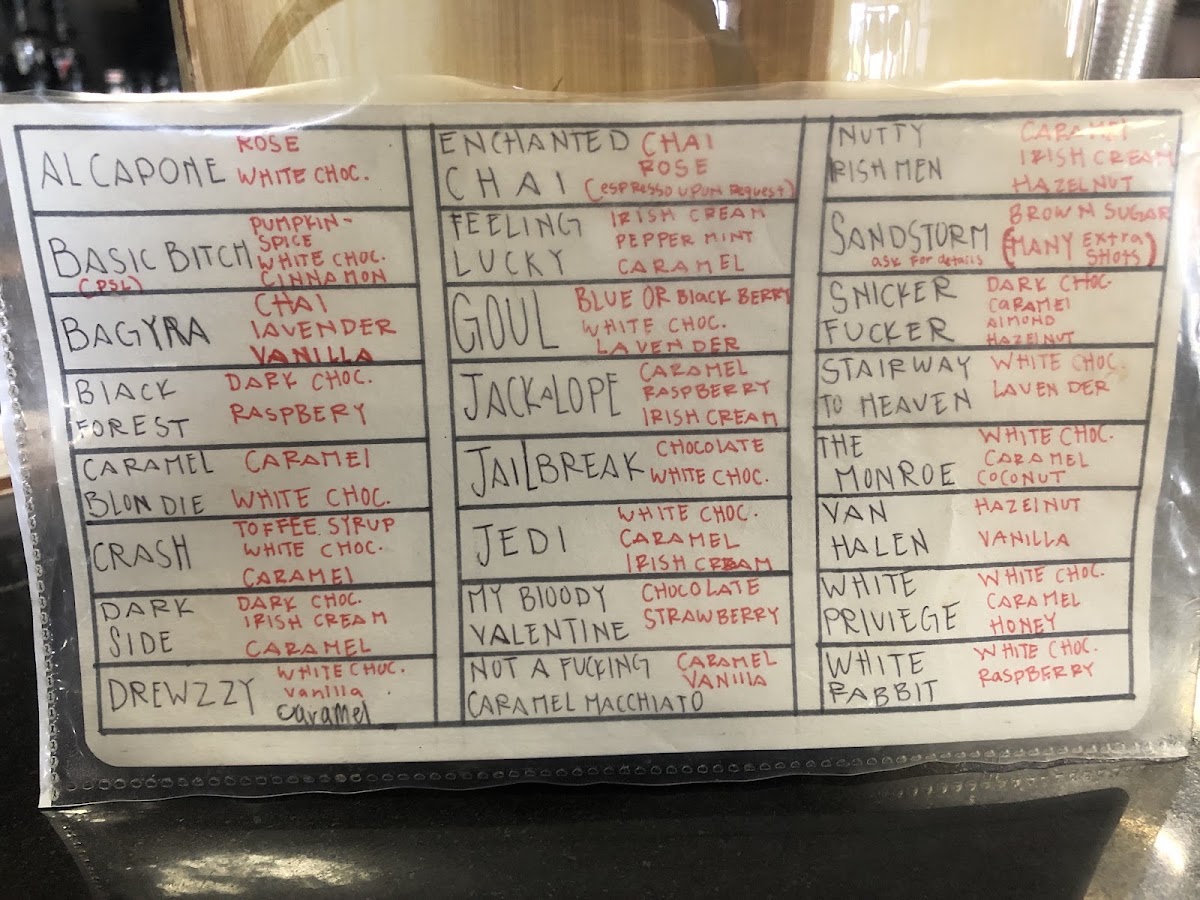 AL CAPONE ROSE
WHITE CHOC.
BASIC BITCH PUMPKIN-
SPICE
WHITE CHOC.
(PSL) CINNAMON
BAGYRA CHAI
LAVENDER
VANILLA
BLACK DARK CHOC.
FOREST RASPBERY
CARAMEL CARAMEL
BLONDIE WHITE CHOC.
CRASH TOFFEE SYRUP
WHITE CHOC.
CARAMEL
DARK DARK CHOC.
SIDE IRISH CREAM
CARAMEL
DREWZZY WHITE CHOC.
vanilla
caramel
ENCHANTED CHAI
CHAI ROSE
(ESPRESSO UPUN REQUEST)
FEELING IRISH CREAM
LUCKY PEPPER MINT
CARAMEL
GOUL BLUE OR BLACK BERRY
WHITE CHOC.
LAVENDER
JACKALOPE CARAMEL
RASPBERRY
IRISH CREAM
JAILBREAK CHOCOLATE
WHITE CHOC.
JEDI WHITE CHOC.
CARAMEL
IRISH CREAM
MY BLOODY CHOCOLATE
VALENTINE STRAWBERRY
NOT A FUCKING CARAMEL
CARAMEL MACCHIATO VANILLA
NUTTY CARAMEL
IRISH MEN IRISH CREAM
HAZELNUT
SANDSTORM BROWN SUGAR
ask for details (MANY Extra
SHOTS)
SNICKER DARK CHOC.
FUCKER CARAMEL
ALMOND
HAZELNUT
STAIRWAY WHITE CHOC.
TO HEAVEN LAVENDER
THE WHITE CHOC.
MONROE CARAMEL
COCONUT
VAN HAZELNUT
HALEN VANILLA
WHITE WHITE CHOC.
PRIVIEGE CARAMEL
HONEY
WHITE WHITE CHOC.
RABBIT RASPBERRY